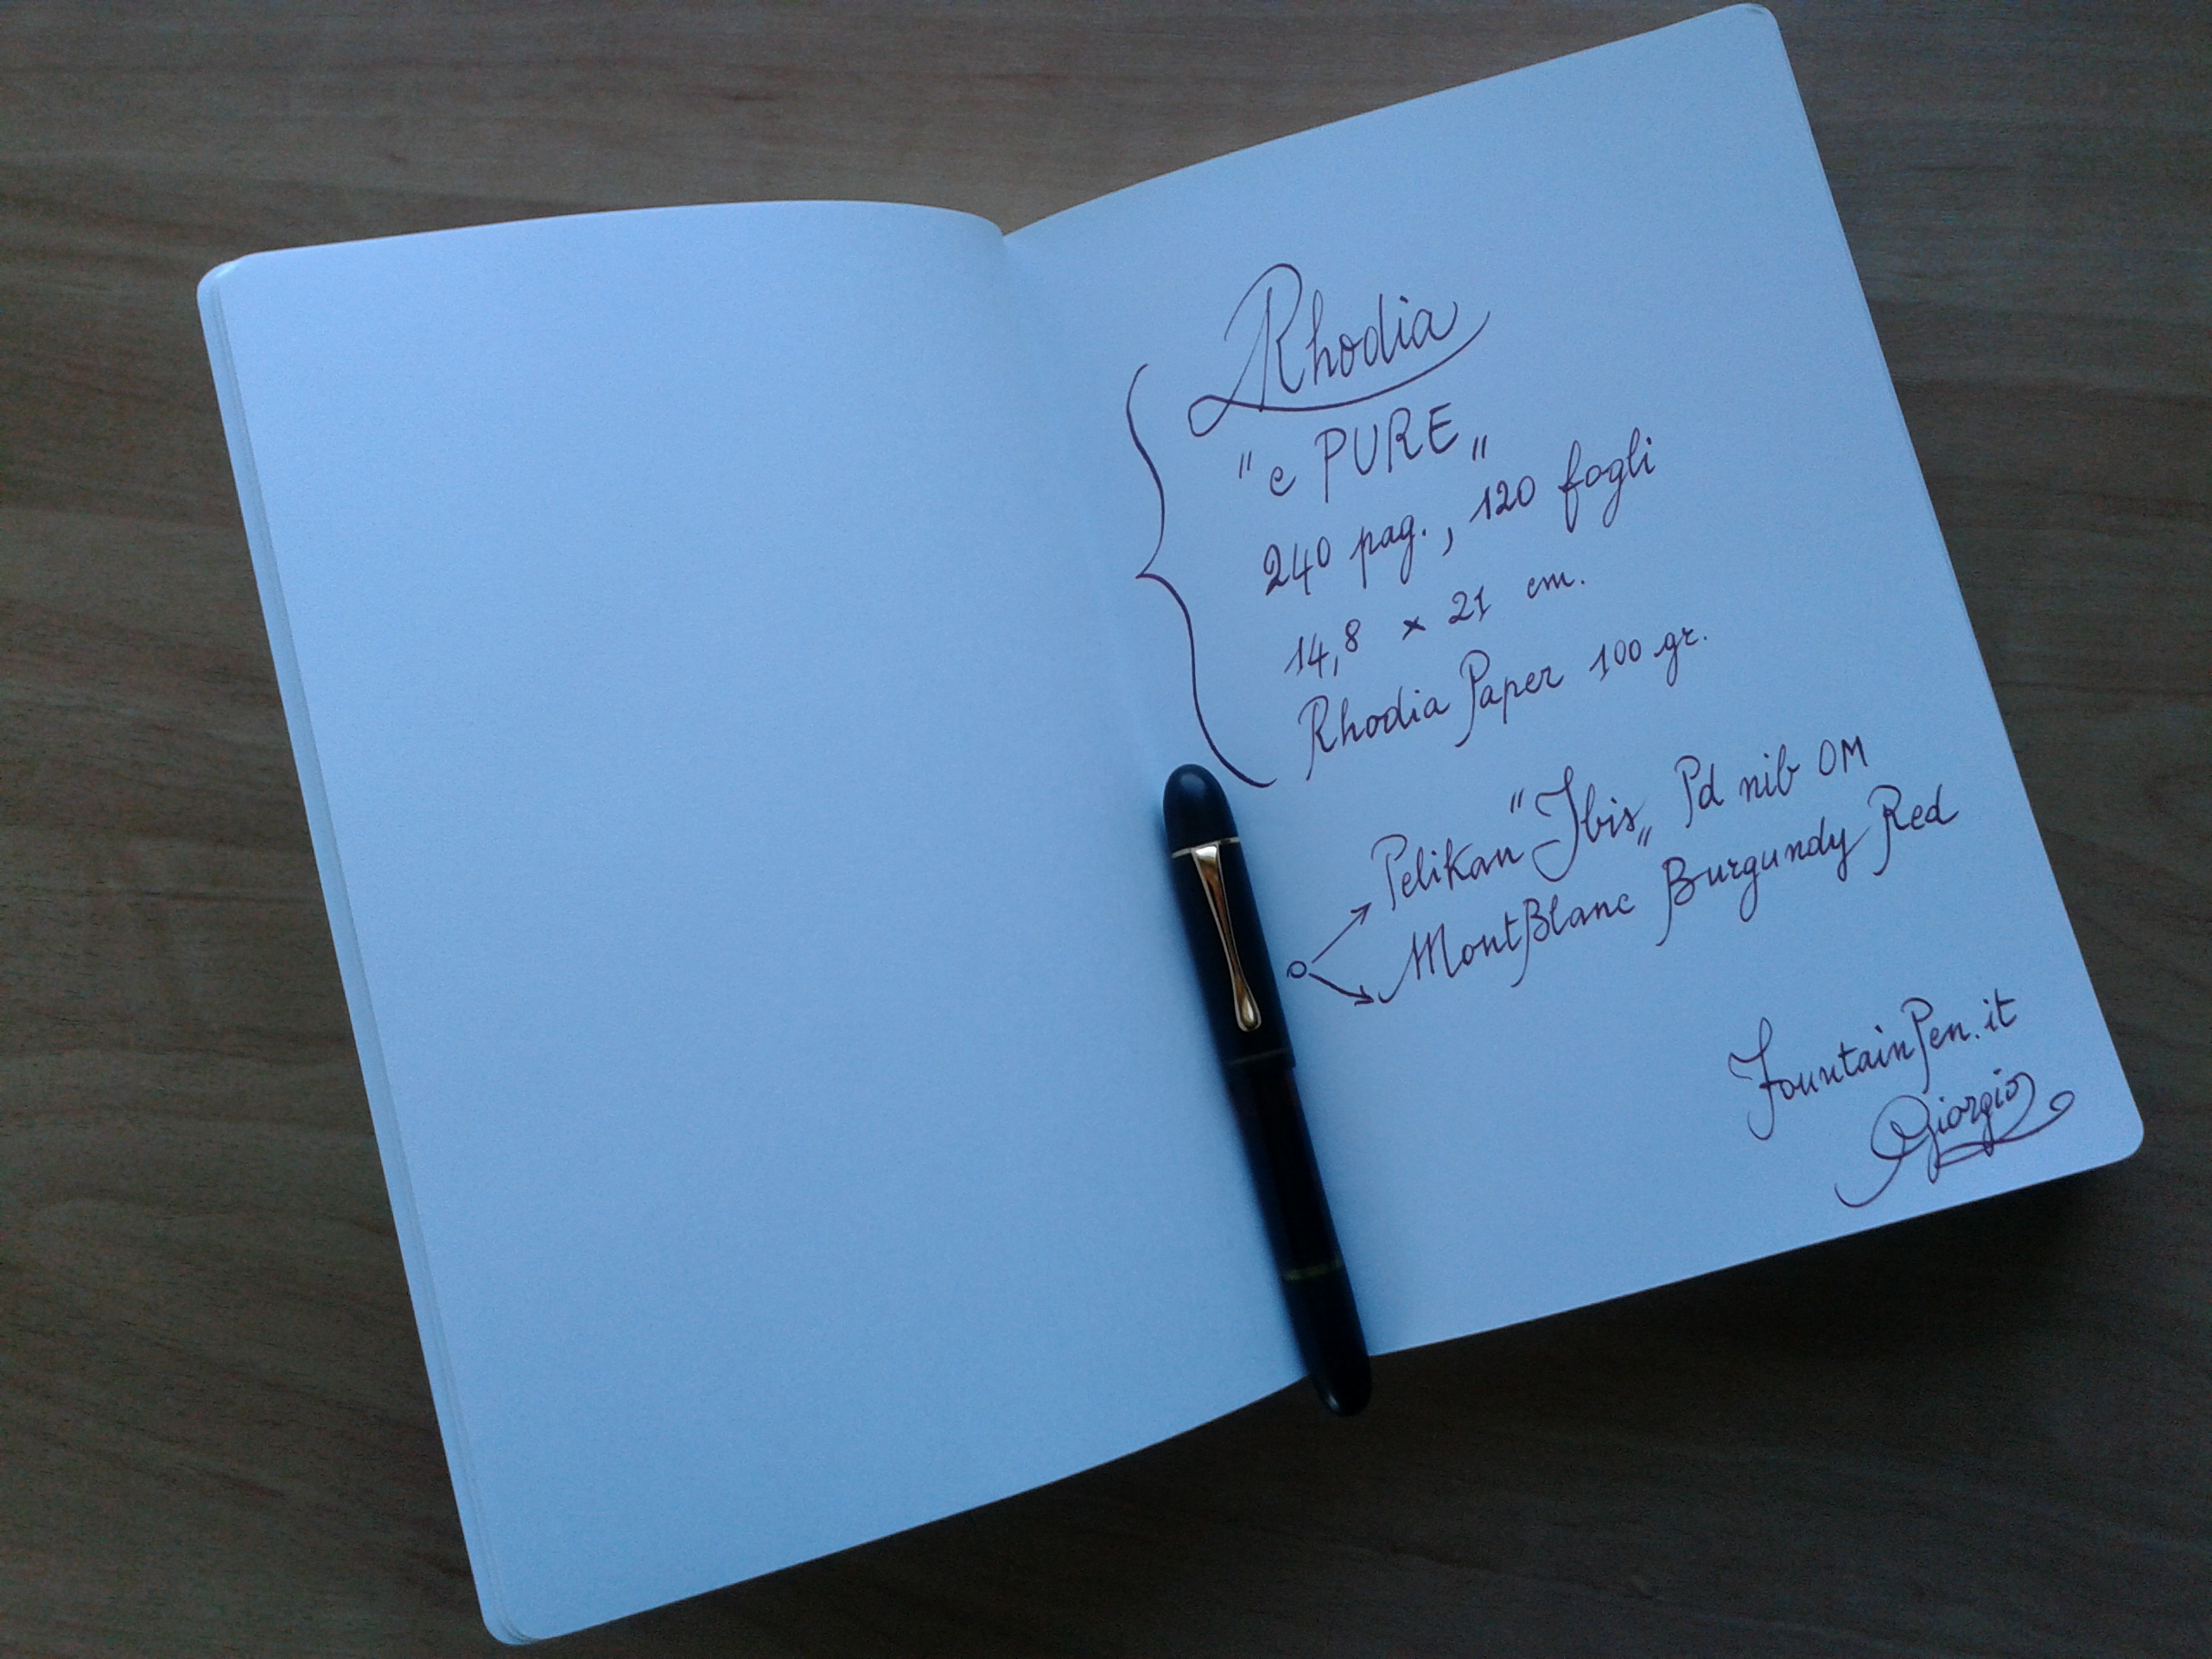 Rhodia
"e PURE"
240 pag., 120 fogli
14,8 x 21 cm.
Rhodia Paper 100 gr.
Pelikan "Ibis" Pd nib OM
MontBlanc Burgundy Red
FountainPen.it
Giorgio